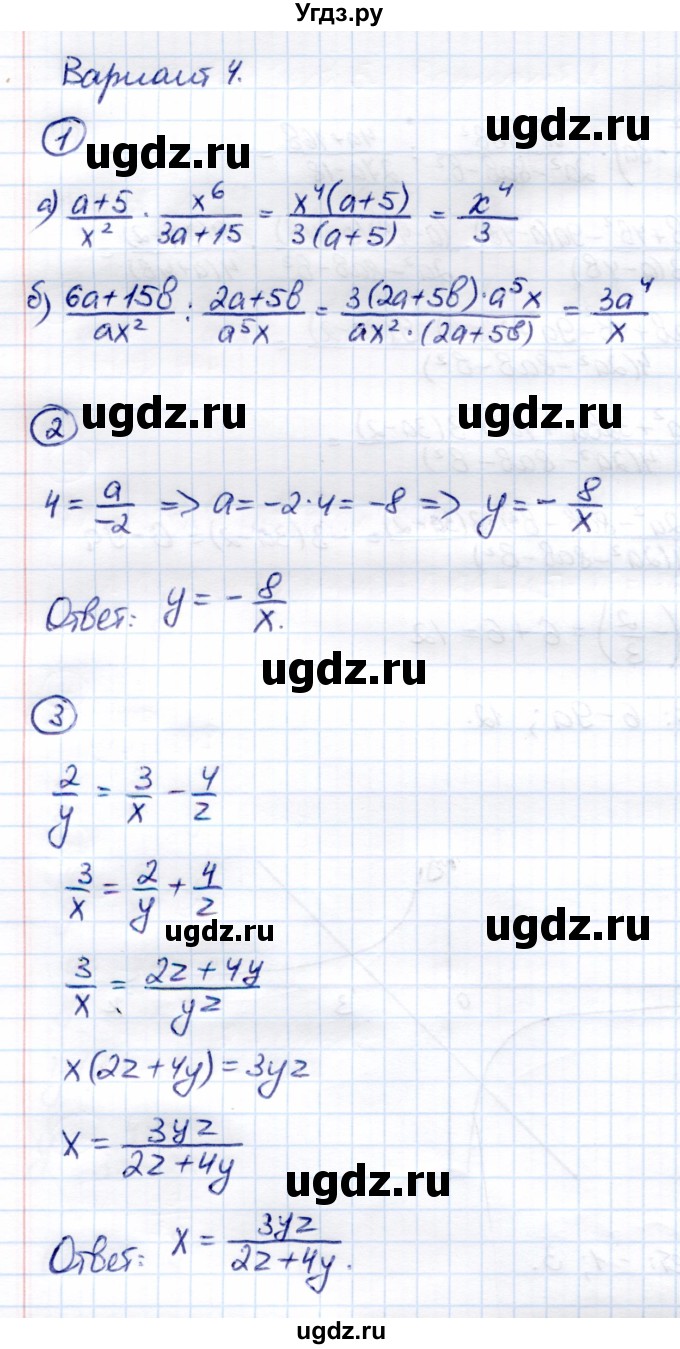 Угдз.ру
Вариант 4.
1
ugdz.ru
ugdz.ru
а) (a+5)/x² · x⁶/(3a+15) = x⁴(a+5)/3(a+5) = x⁴/3
б) (6a+15b)/ax² : (2a+5b)/a⁵x = 3(2a+5b)·a⁵x/ax²·(2a+5b) = 3a⁴/x
2
ugdz.ru
ugdz.ru
4 = a/-2 => a = -2·4 = -8 => y = - 8/x
Ответ: y = - 8/x.
ugdz.ru
3
2/y = 3/x - 4/z
3/x = 2/y + 4/z
ugdz.ru
ugdz.ru
3/x = (2z+4y)/yz
x(2z+4y) = 3yz
x = 3yz/(2z+4y)
ugdz.ru
Ответ: x = 3yz/(2z+4y).
ugdz.ru